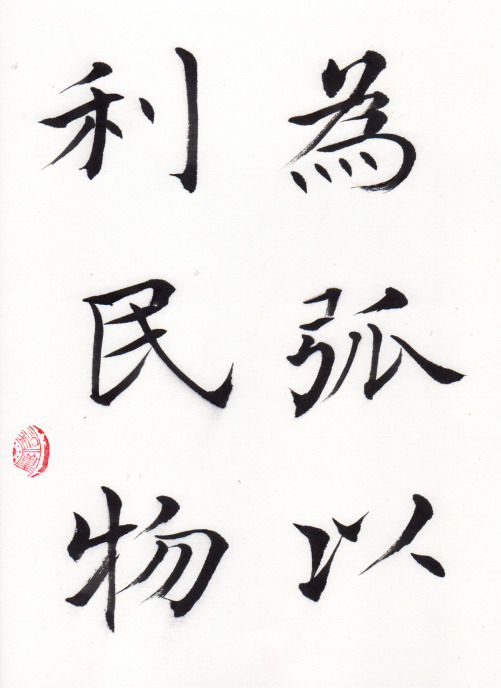 為弧以
利民物